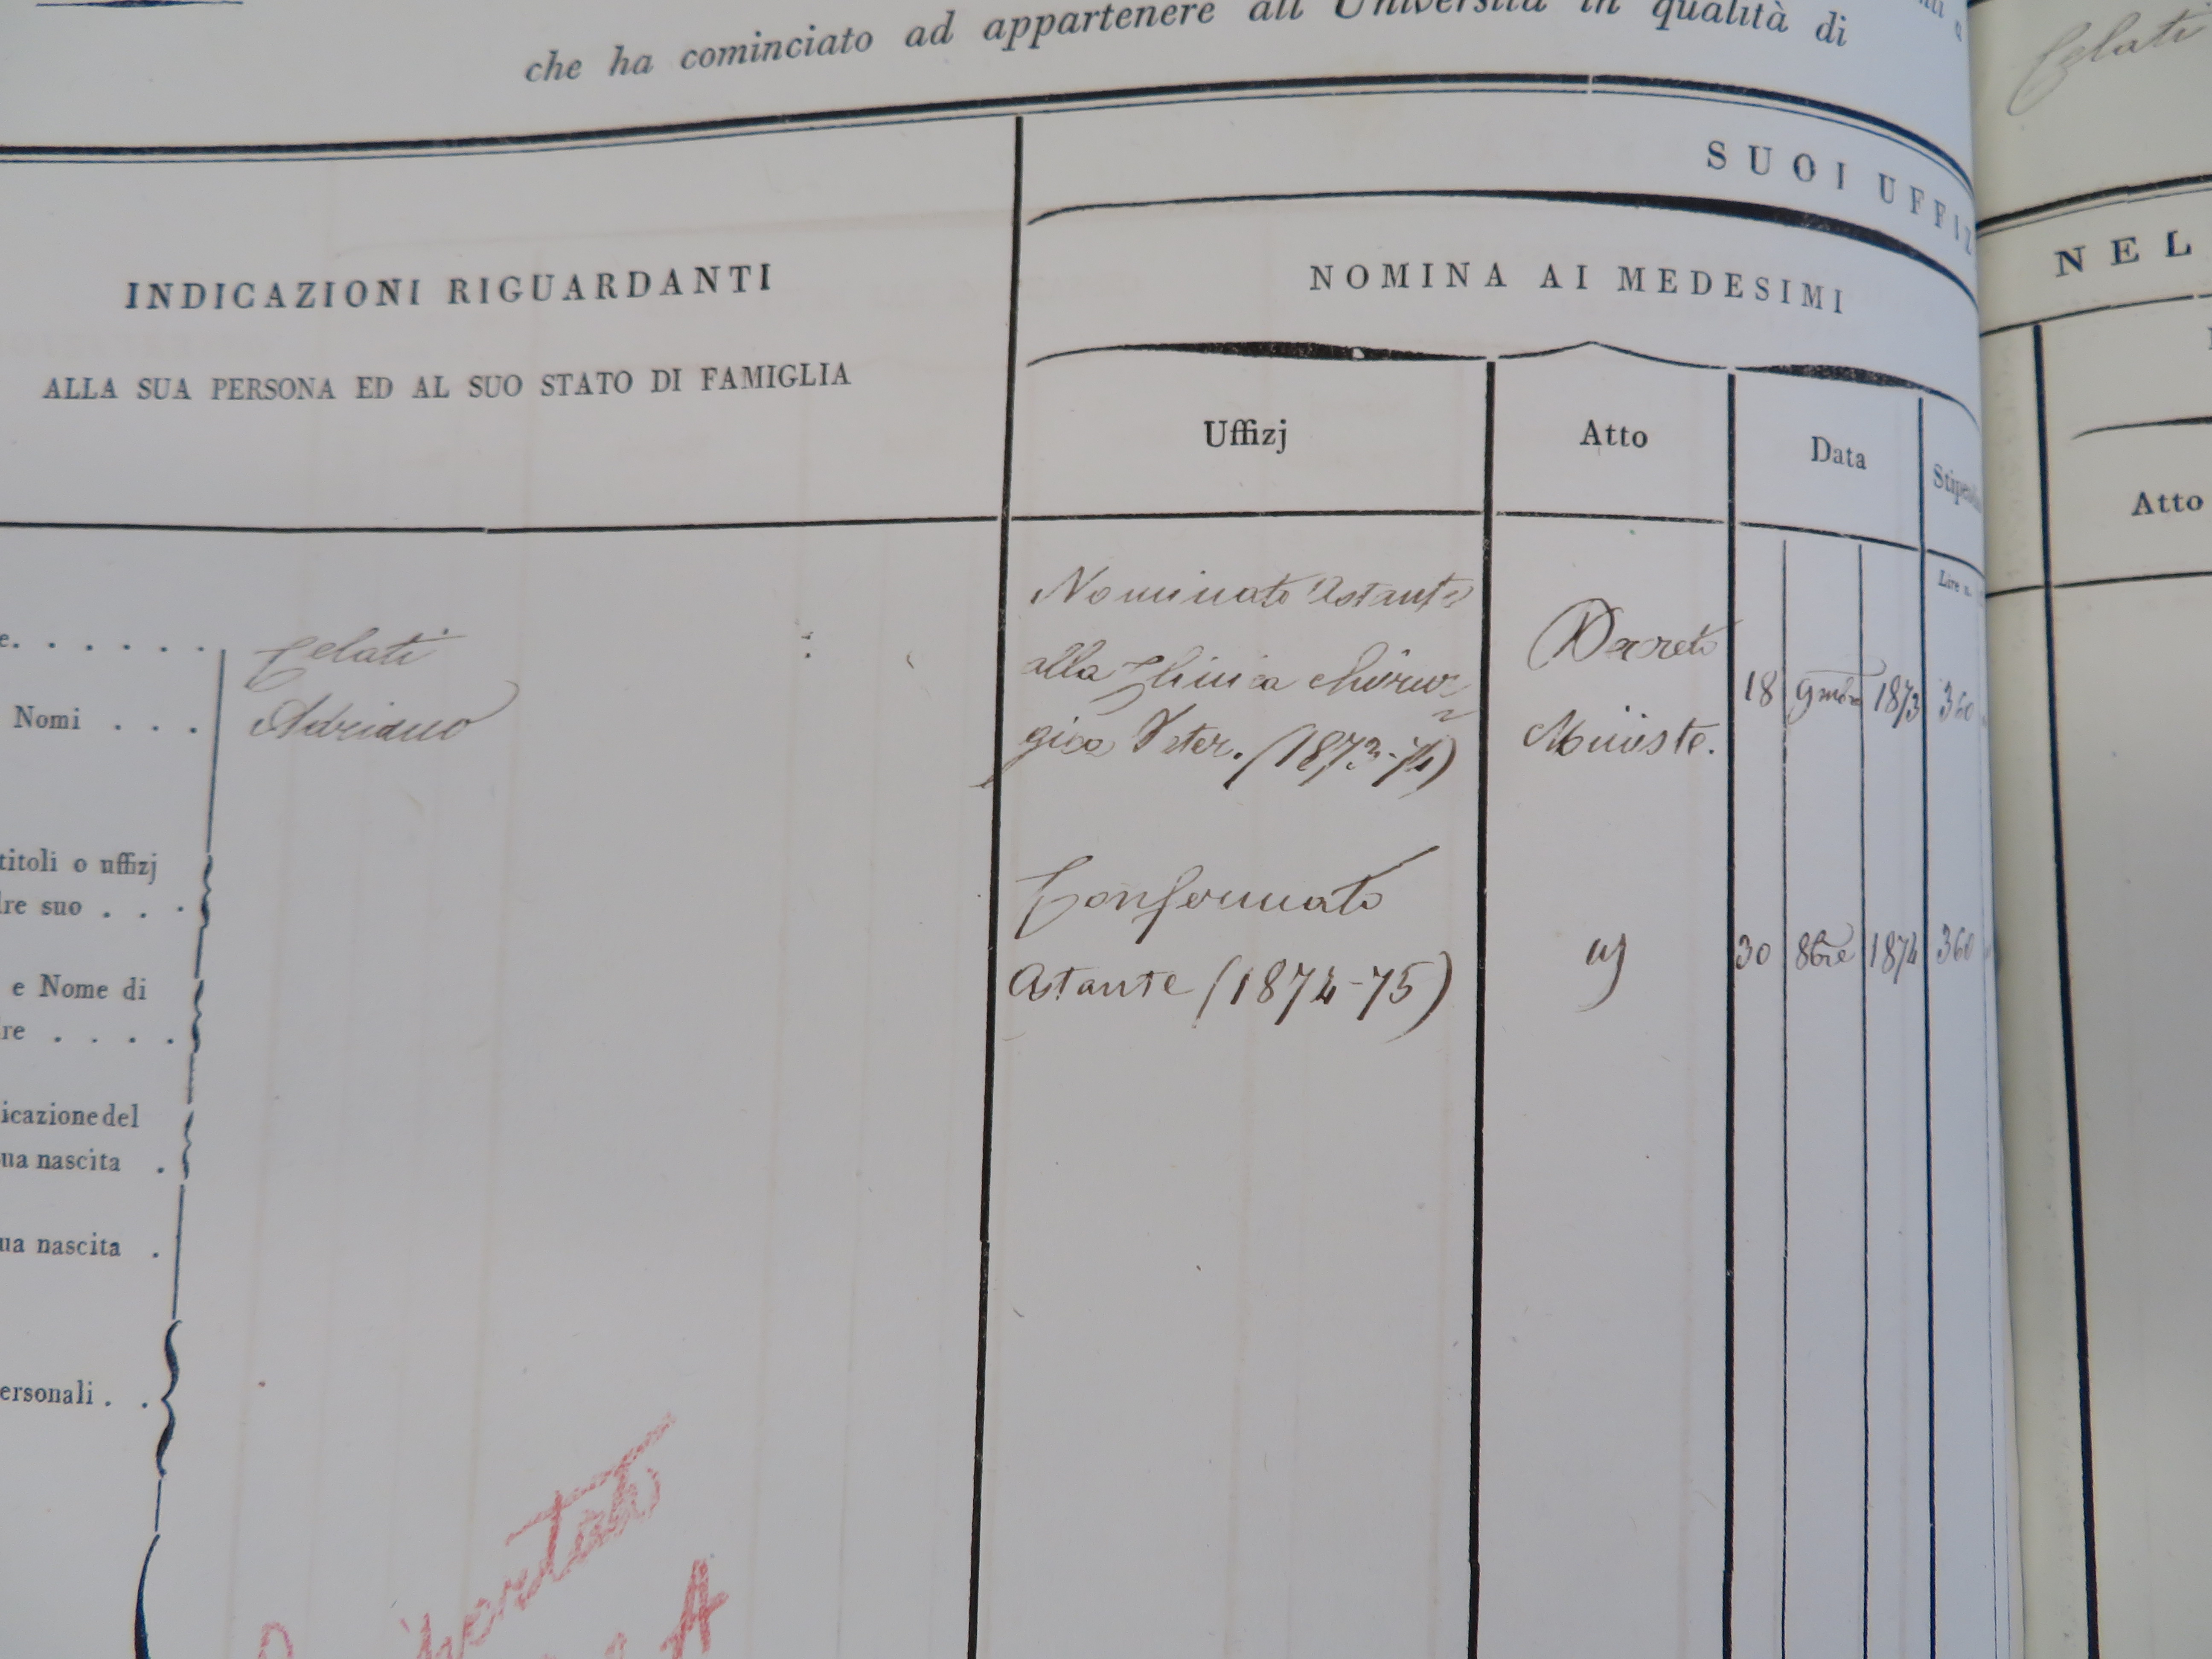 che ha cominciato ad appartenere all'Università in qualità di
Celati
SUOI UFFIZ
NEL
INDICAZIONI RIGUARDANTI
NOMINA AI MEDESIMI
ALLA SUA PERSONA ED AL SUO STATO DI FAMIGLIA
Uffizj
Atto
Data
Stipend
Atto
Lire n.
e. . . . . . .
Celati
Nomi . . .
Adriano
Nominato Astante
alla Clinica chirur=
gica Veter. (1873-74)
Decreto
Ministe.
18 9mbre 1873 360
titoli o uffizj
dre suo . . .
Confermato
Astante (1874-75)
30 8bre 1874 360
e Nome di
dre . . . .
icazione del
ua nascita .
ua nascita .
ersonali . .
A